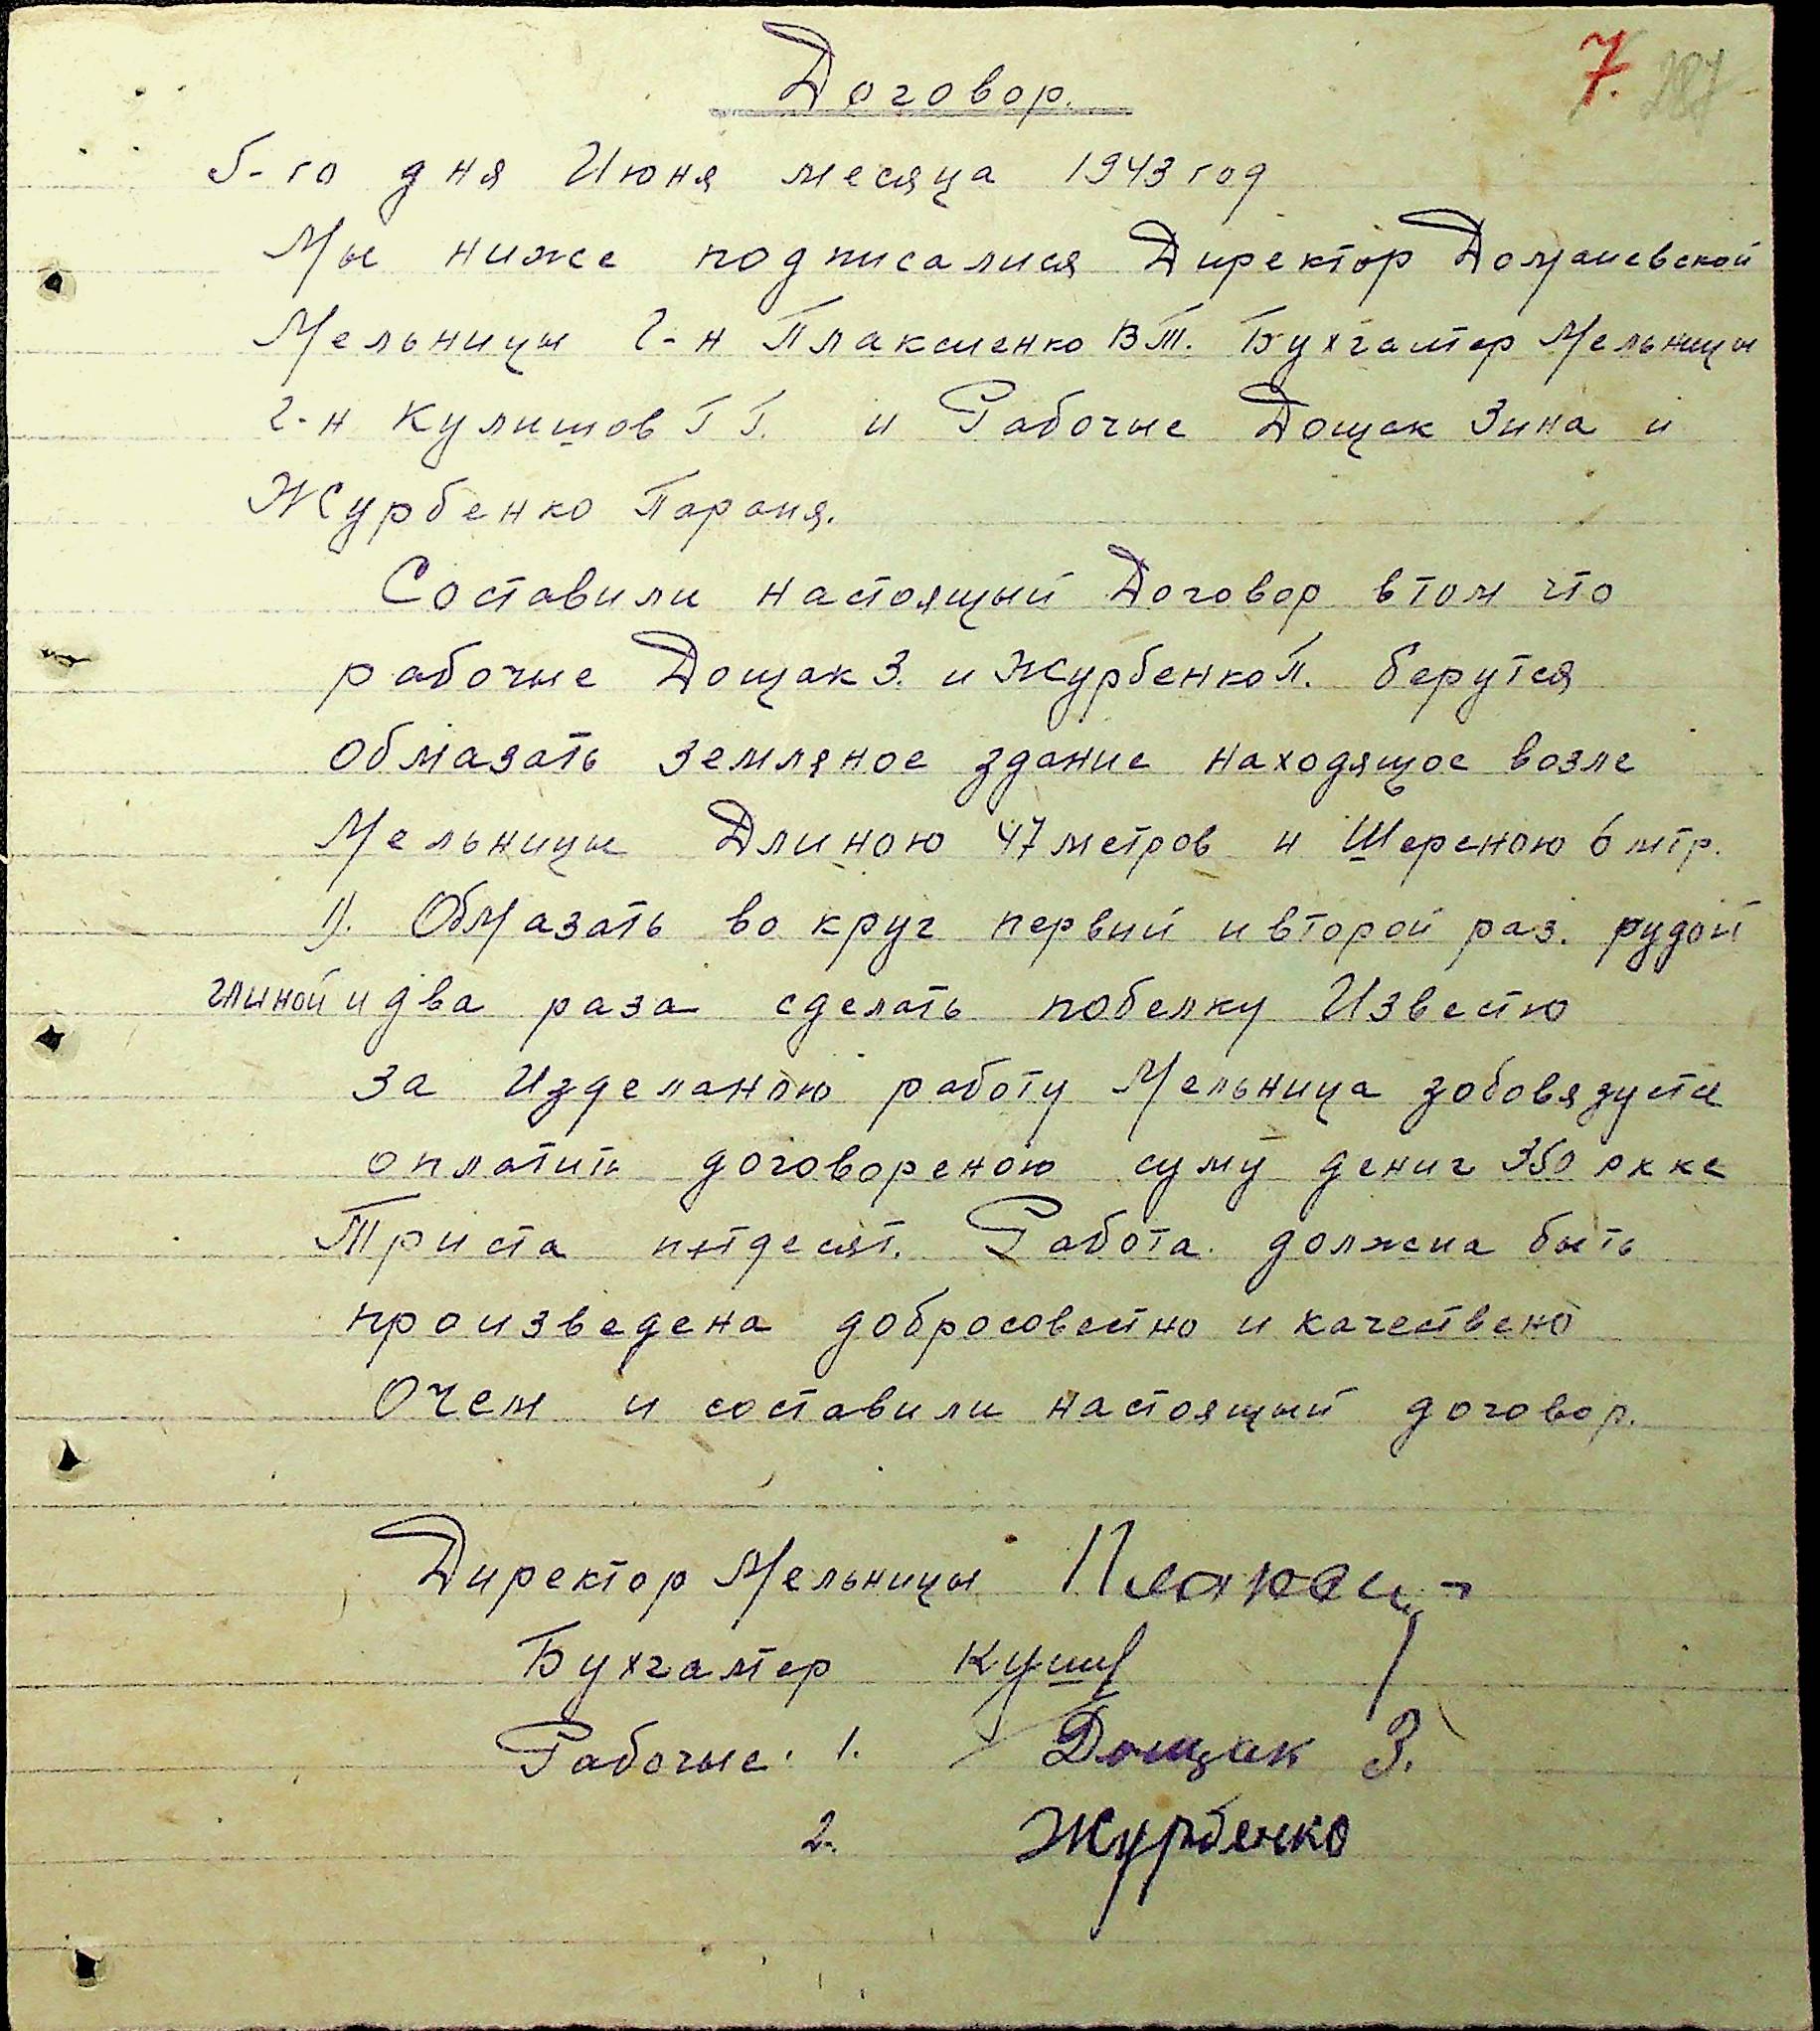 7. 287
Договор.
5-го дня Июня месяца 1943 год
Мы ниже подписалися Директор Доманевской
Мельницы г-н Плаксиенко В Т. Бухгалтер Мельницы
г-н Кулишов Г Г. и Рабочие Дощак Зина и
Журбенко Параня.
Составили настоящий Договор втом что
рабочие Дощак З. и Журбенко П. берутся
обмазать земляное здание находящое возле
Мельницы Длиною 47 метров и Шереною 6 мтр.
1). Обмазать во круг первий и второй раз. рудой
глиной и два раза сделать побелку Известю
за Изделаною работу Мельница зобовязуется
оплатить договореною суму дениг 350 ркке
Триста пятдесят. Работа должена быть
произведена добросовестно и качествено
Очем и составили настоящий договор.
Директор Мельницы
Бухгалтер
Рабочие: 1. Дощак З.
2. Журбенко